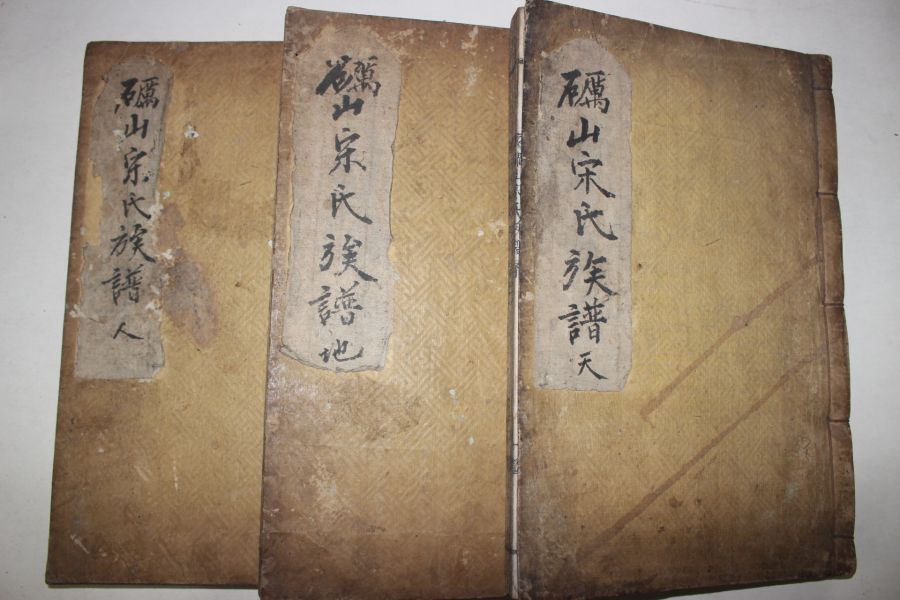 礪山宋氏族譜 天
礪山宋氏族譜 地
礪山宋氏族譜 人